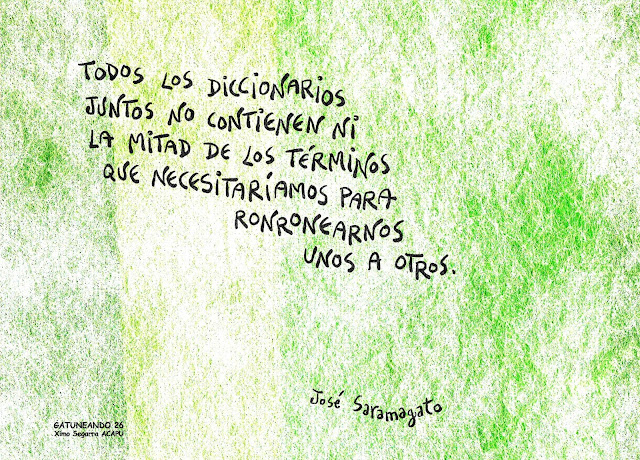 TODOS LOS DICCIONARIOS
JUNTOS NO CONTIENEN NI
LA MITAD DE LOS TÉRMINOS
QUE NECESITARÍAMOS PARA
RONRONEARNOS
UNOS A OTROS.
José Saramagato
GATUNEANDO 26
Ximo Segarra ACAPU